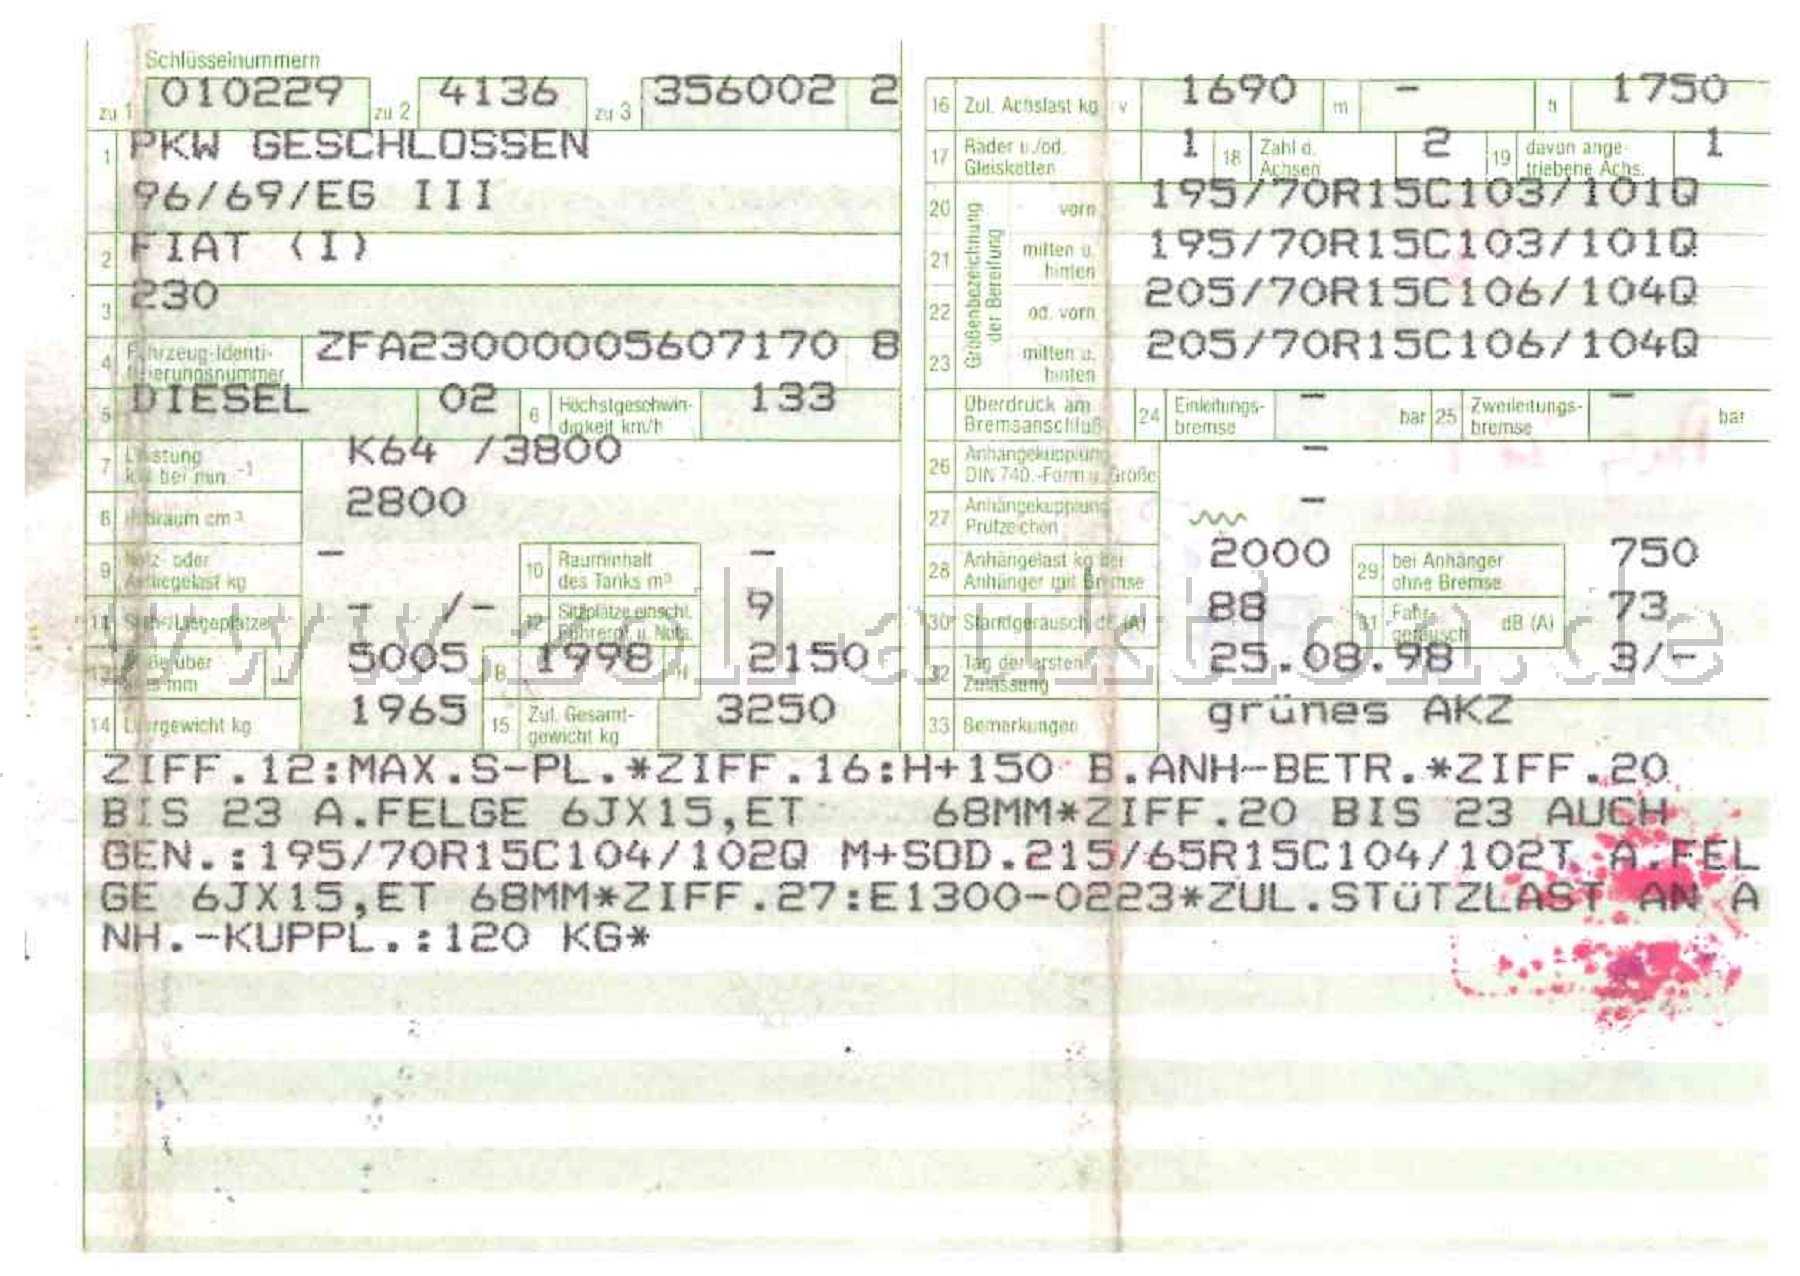 Schlüsselnummern
zu 1 010229 zu 2 4136 zu 3 356002 2
1 PKW GESCHLOSSEN
96/69/EG III
2 FIAT (I)
3 230
4 Fahrzeug-Identi-
fizierungsnummer ZFA23000005607170 8
5 DIESEL 02 6 Höchstgeschwin-
digkeit km/h 133
7 Leistung
kW bei min -1 K64 /3800
8 Hubraum cm³ 2800
9 Nutz- oder
Aufliegelast kg - 10 Rauminhalt
des Tanks m³ -
11 Steh-/Liegeplätze - /- 12 Sitzplätze einschl.
Führerpl. u. Nots. 9
13 Maße über
alles mm L 5005 B 1998 H 2150
14 Leergewicht kg 1965 15 Zul. Gesamt-
gewicht kg 3250
16 Zul. Achslast kg v 1690 m - h 1750
17 Räder u./od.
Gleisketten 1 18 Zahl d.
Achsen 2 19 davon ange-
triebene Achs. 1
Größenbezeichnung
der Bereifung
20 vorn 195/70R15C103/101Q
21 mitten u.
hinten 195/70R15C103/101Q
22 od. vorn 205/70R15C106/104Q
23 mitten u.
hinten 205/70R15C106/104Q
Überdruck am
Bremsanschluß 24 Einleitungs-
bremse - bar 25 Zweileitungs-
bremse - bar
26 Anhängekupplung
DIN 740.-Form u. Größe -
27 Anhängekupplung
Prüfzeichen -
28 Anhängelast kg bei
Anhänger mit Bremse 2000 29 bei Anhänger
ohne Bremse 750
30 Standgeräusch dB (A) 88 31 Fahr-
geräusch dB (A) 73
32 Tag der ersten
Zulassung 25.08.98 3/-
33 Bemerkungen grünes AKZ
ZIFF.12:MAX.S-PL.*ZIFF.16:H+150 B.ANH-BETR.*ZIFF.20
BIS 23 A.FELGE 6JX15,ET 68MM*ZIFF.20 BIS 23 AUCH
GEN.:195/70R15C104/102Q M+SOD.215/65R15C104/102T A.FEL
GE 6JX15,ET 68MM*ZIFF.27:E1300-0223*ZUL.STÜTZLAST AN A
NH.-KUPPL.:120 KG*
www.zoll-auktion.de